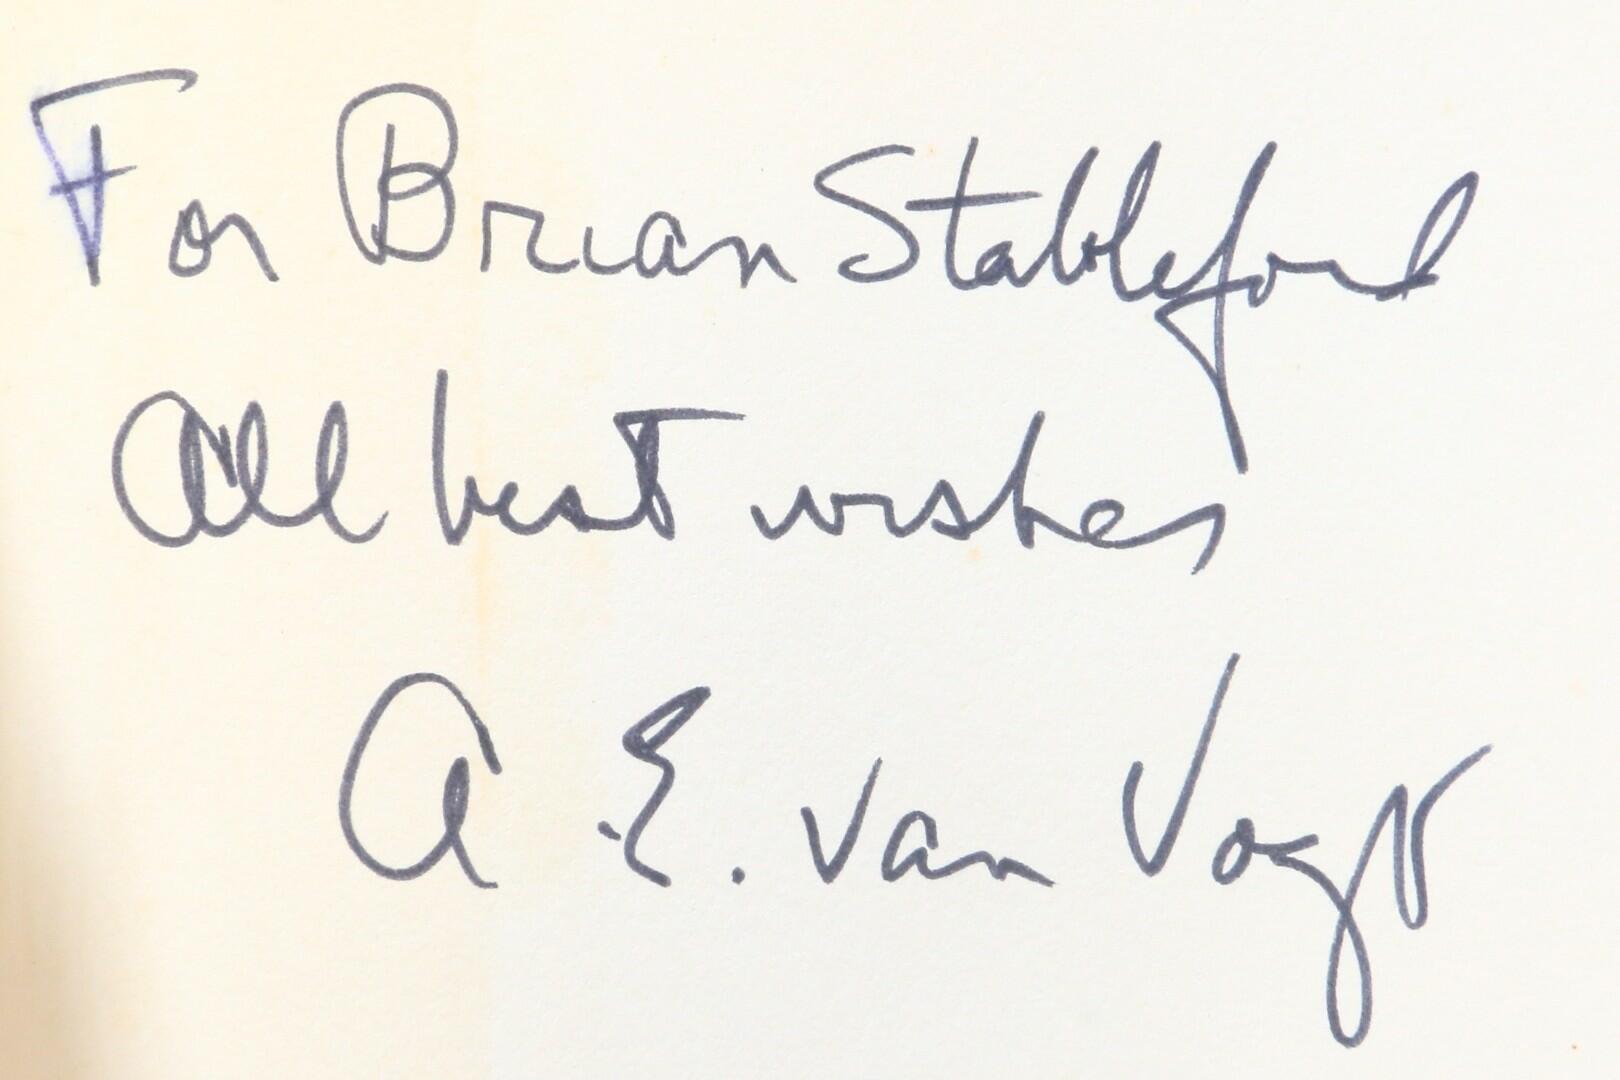 For Brian Stableford
All best wishes
A. E. van Vogt